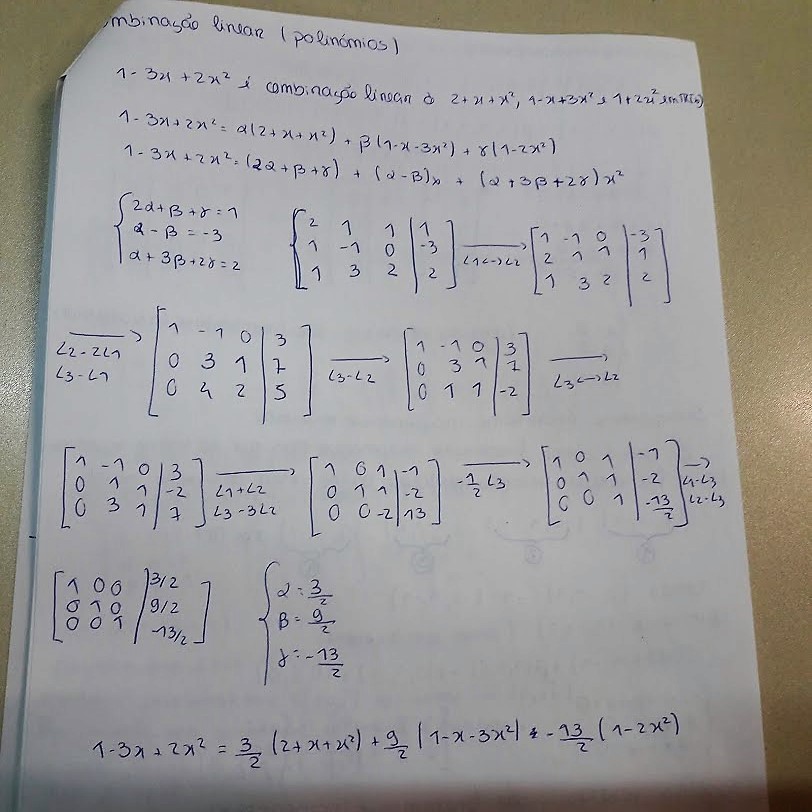 mbinação linear (polinómios)
1-3x+2x² é combinação linear d 2+x+x², 1-x+3x² e 1+2x² em
1-3x+2x² = α(2+x+x²) + β(1-x-3x²) + γ(1-2x²)
1-3x+2x² = (2α+β+γ) + (α-β)x + (α+3β+2γ)x²
{ 2α+β+γ=1
α-β=-3
α+3β+2γ=2
[ 2 1 1 | 1
1 -1 0 | -3
1 3 2 | 2 ] → L1<->L2 [ 1 -1 0 | -3
2 1 1 | 1
1 3 2 | 2 ]
→ L2-2L1
L3-L1
[ 1 -1 0 | 3
0 3 1 | 7
0 4 2 | 5 ] → L3-L2 [ 1 -1 0 | 3
0 3 1 | 7
0 1 1 | -2 ] → L3<->L2
[ 1 -1 0 | 3
0 1 1 | -2
0 3 1 | 7 ] → L1+L2
L3-3L2
[ 1 0 1 | -1
0 1 1 | -2
0 0 -2 | 13 ] → -1/2 L3 [ 1 0 1 | -1
0 1 1 | -2
0 0 1 | -13/2 ] → L1-L3
L2-L3
[ 1 0 0 | 3/2
0 1 0 | 9/2
0 0 1 | -13/2 ]
{ α = 3/2
β = 9/2
γ = -13/2
1-3x+2x² = 3/2 (2+x+x²) + 9/2 (1-x-3x²) + -13/2 (1-2x²)